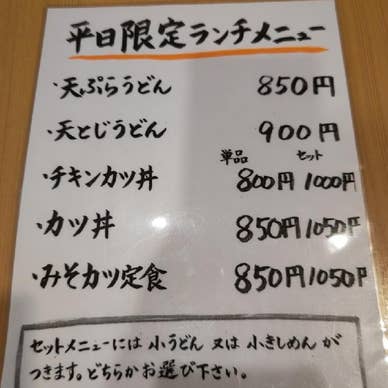 平日限定ランチメニュー
・天ぷらうどん 850円
・天とじうどん 900円
単品 セット
・チキンカツ丼 800円 1000円
・カツ丼 850円 1050円
・みそカツ定食 850円 1050円
セットメニューには 小うどん 又は 小きしめん が
つきます。どちらかお選び下さい。